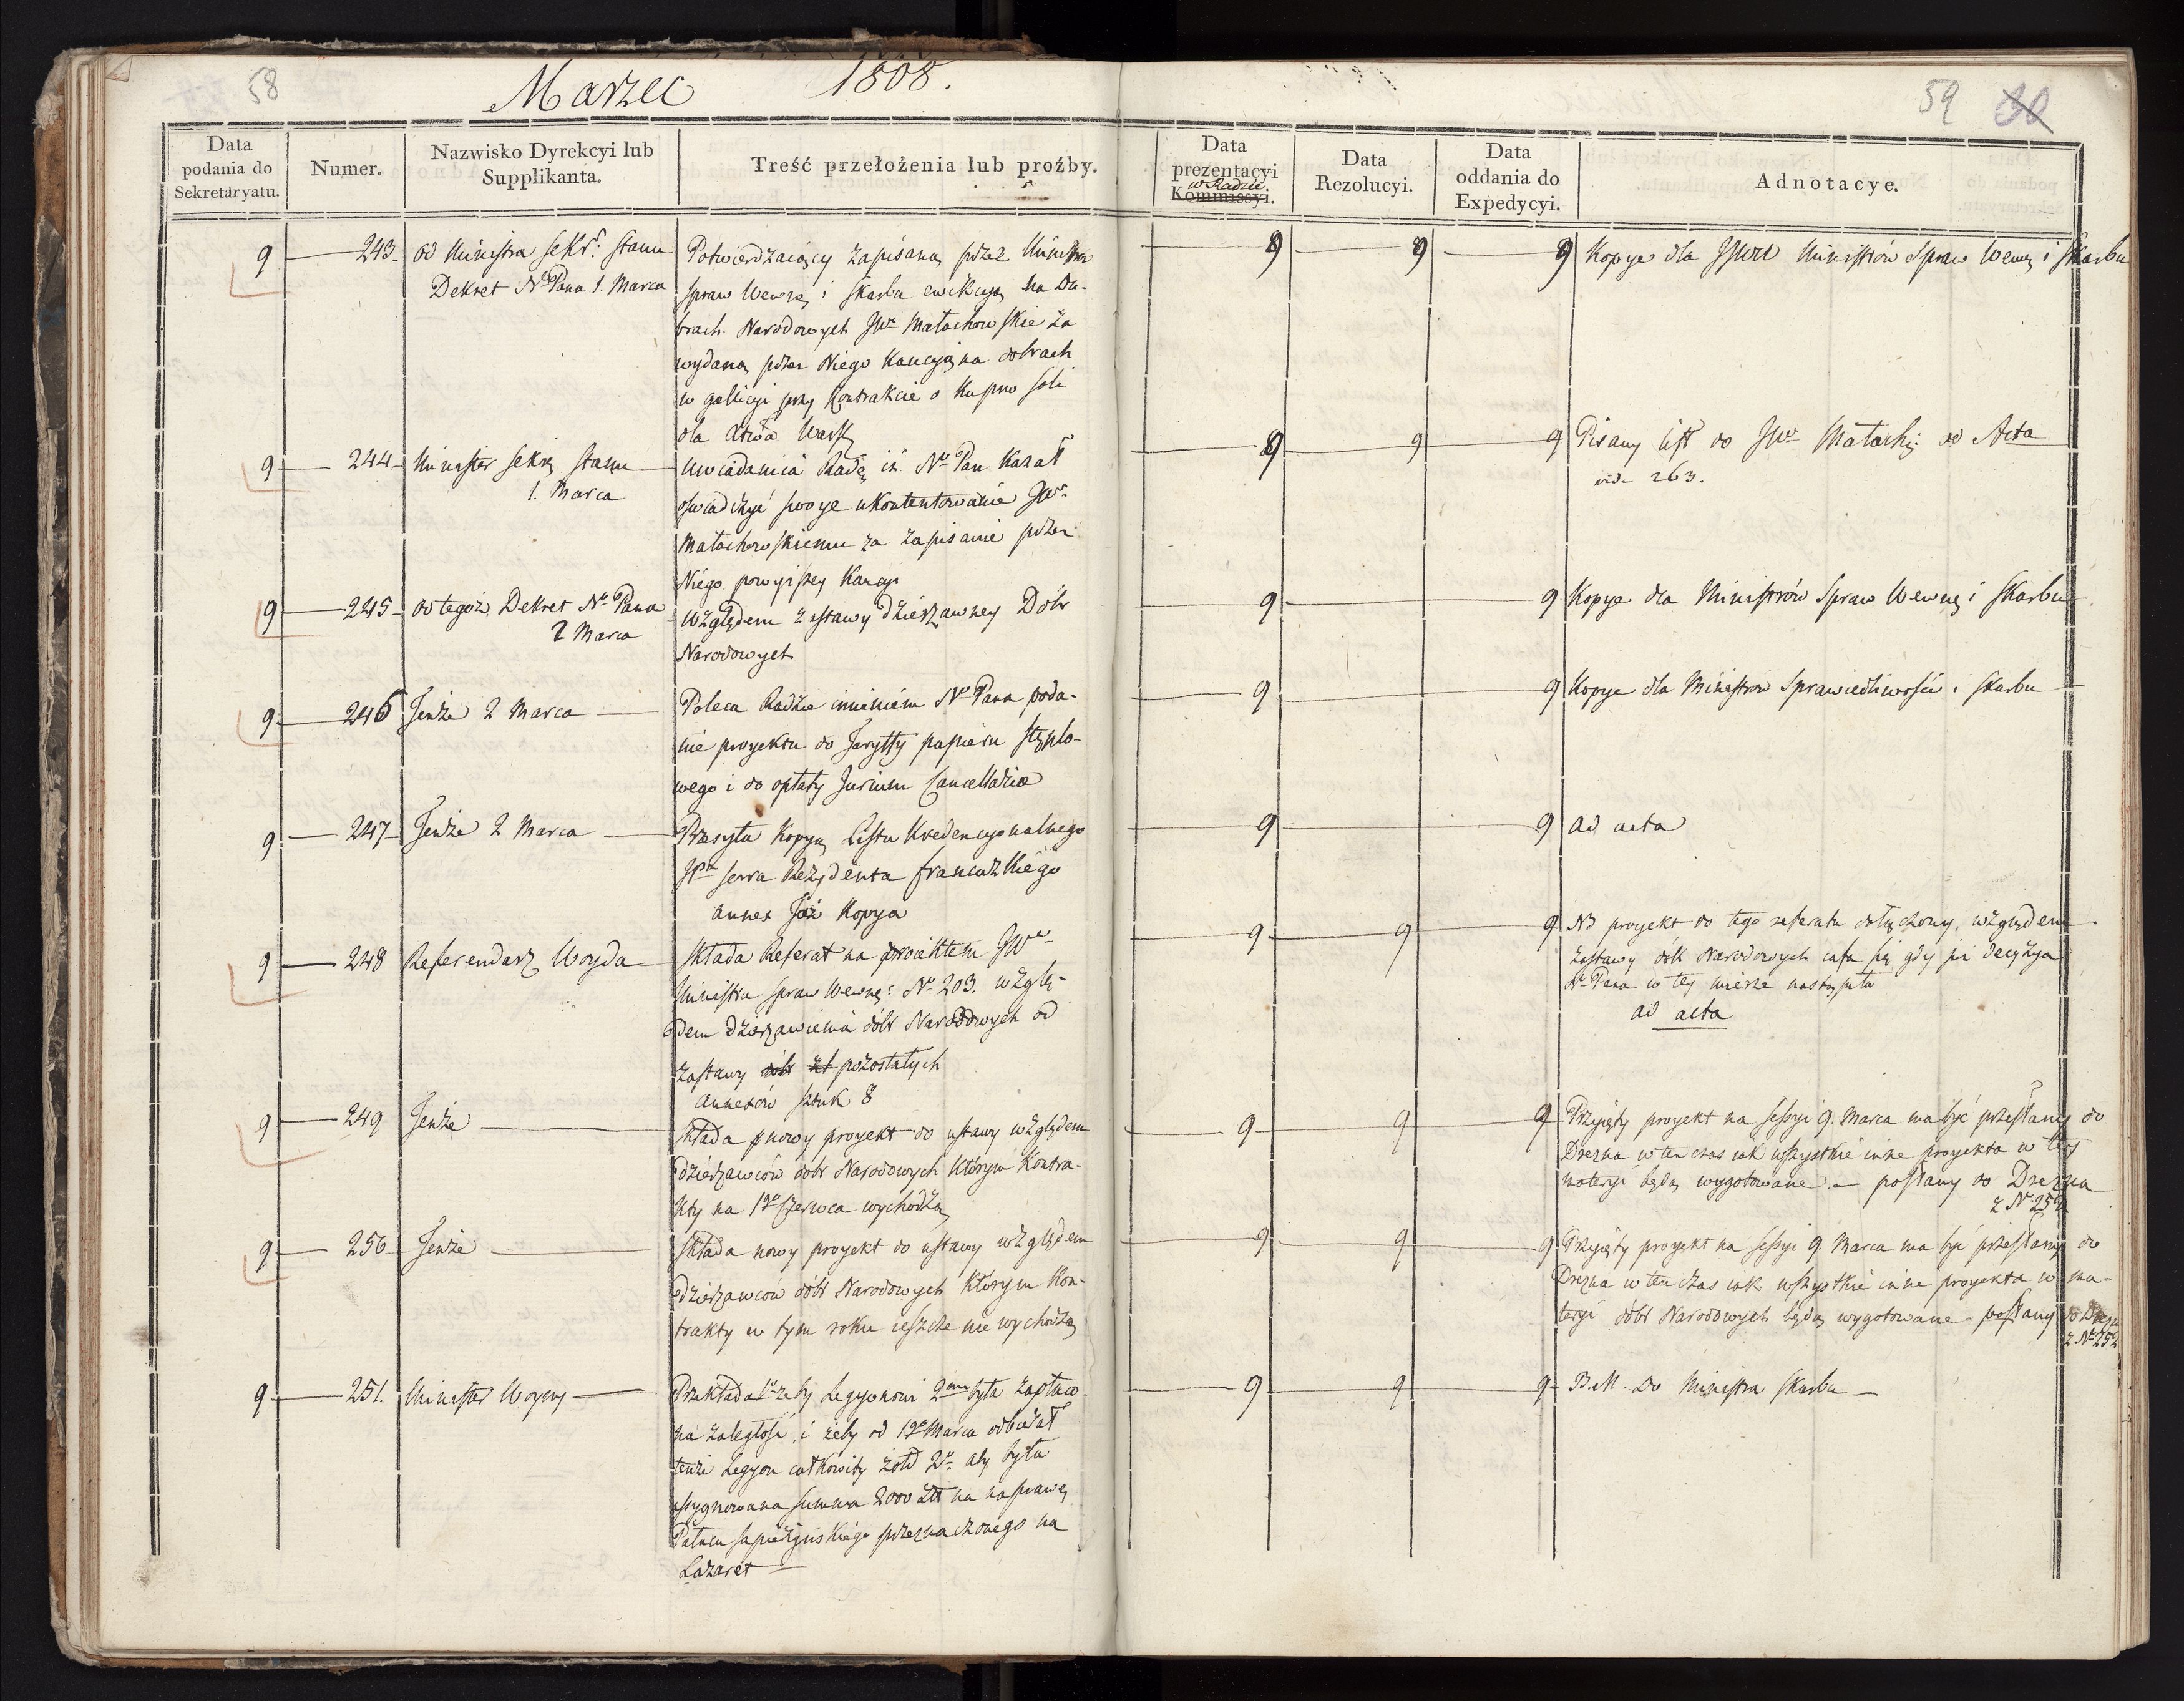 58
Marzec 1808.
59 30
Data podania do Sekretaryatu.
Numer.
Nazwisko Dyrekcyi lub Supplikanta.
Treść przełożenia lub proźby.
Data prezentacyi Kommissyi. w Radzie.
Data Rezolucyi.
Data oddania do Expedycyi.
Adnotacye.
9 243 od Ministra Sekr. Stanu
Dekret Nº Pana 1. Marca
Potwierdzaiący zapisaną przez Ministra
Spraw Wewnę i Skarbu ewikcyą na Do-
brach Narodowych JW Małachowskie za
wydaną przez Niego Kaucyą na dobrach
w Gallicyi przy Kontrakcie o Kupno Soli
dla Xtwa Warsz
9 9 9 Kopye dla JJWW Ministrów Spraw Wewnę i Skarbu
9 244 Minister Sekrę Stanu
1. Marca
Uwiadamia Radę iż Nº Pan Kazał
oświadczyć swoye ukontentowanie JW
Małachowskiemu za zapisanie przez
Niego powyższey Kaucyi
9 9 9 Pisany list do JW Małachę ad Acta
vide 263.
9 245 od tegoż Dekret Nº Pana
2 Marca
Względem zastawy dzierzawney Dóbr
Narodowych
9 9 Kopye dla Ministrów Spraw Wewnę i Skarbu
9 246 Tenże 2 Marca
Poleca Radzie imieniem Nº Pana poda-
nie proyektu do Taryffy papieru stęplo-
wego i do opłaty Jurium Cancellariæ
9 9 Kopye dla Ministrów Sprawiedliwości i Skarbu
9 247 Tenże 2 Marca
Przesyła Kopyą Listu Kredencyonalnego
JPa Serra Rezydenta francuzkiego
annex Też Kopya
9 9 ad acta
9 248 Referendarz Woyda
Składa Referat na proiektem JW
Ministra Spraw Wewnę: Nº 203. wzglę-
dem dzierzawienia dóbr Narodowych od
zastawy dóbr pozostałych
annexów sztuk 8
9 9 9 NB proyekt do tego referatu dołączony, względem
zastawy dóbr Narodowych cofa się gdy iuż decyzya
Nº Pana w tey mierze nastąpiła
ad acta
9 249 Tenże
Składa nowy proyekt do ustawy względem
dzierzawców dóbr Narodowych którym Kontra-
kty na 1go Czerwca wychodzą
9 9 9 Przyięty proyekt na Sessyi 9. Marca ma być przesłany do
Drezna w ten czas iak wszystkie inne proyekta w tey
materyi będą wygotowane. — posłany do Drezna
z Nº 252
9 250 Tenże
Składa nowy proyekt do ustawy względem
dzierzawców dóbr Narodowych którym Kon-
trakty w tym roku ieszcze nie wychodzą
9 9 9 Przyięty proyekt na Sessyi 9. Marca ma być przesłany do
Drezna w ten czas iak wszystkie inne proyekta w ma-
teryi dóbr Narodowych będą wygotowane - posłany do Drezna
z Nº 252
9 251. Minister Woyny
Przekłada 1º żeby Legyonowi 2mu była zapłaco-
na zaległość, i żeby od 1go Marca odbierał
tenże Legyon całkowity żołd 2º aby była
assygnowana summa 2000 Złt na naprawę
Pałacu Sapieżyńskiego przeznaczonego na
Lazaret
9 9 9 B.M. Do Ministra Skarbu